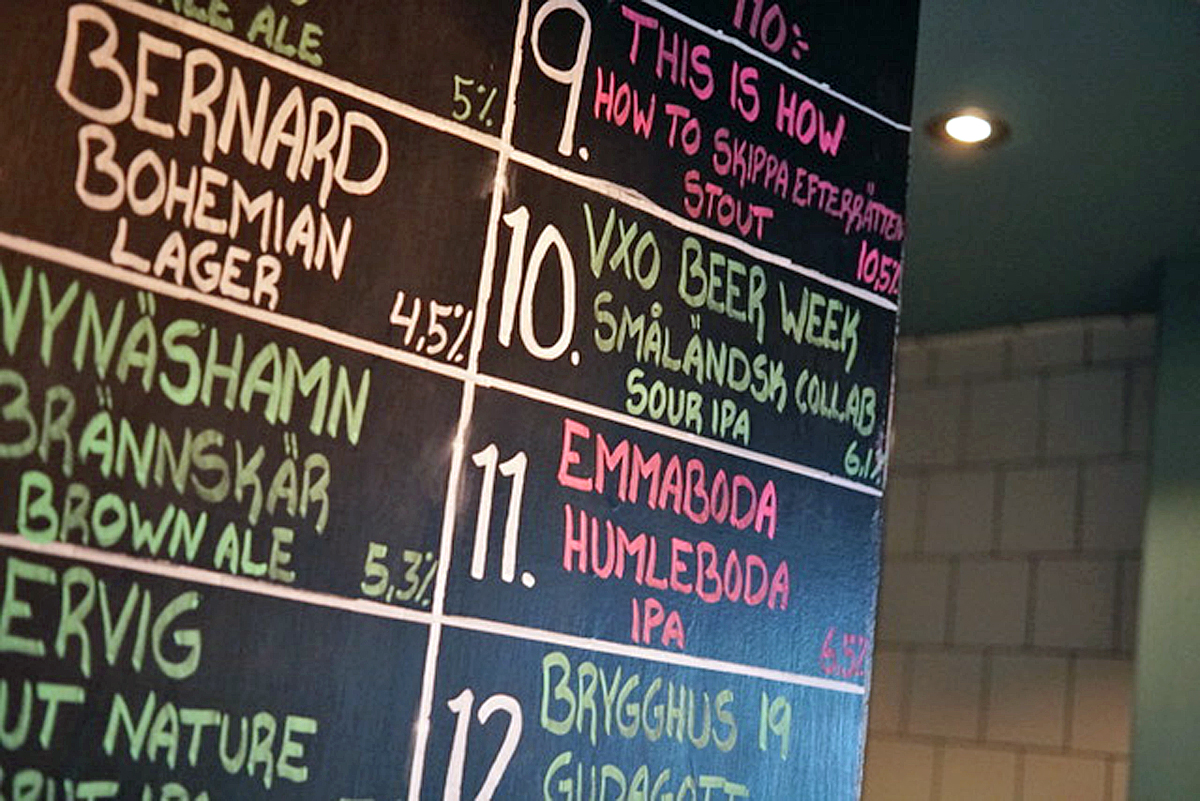 ALE
5%
BERNARD
BOHEMIAN
LAGER
4,5%
NYNÄSHAMN
BRÄNNSKÄR
BROWN ALE
5,3%
ERVIG
UT NATURE
BRUT IPA
110:-
9.
THIS IS HOW
HOW TO SKIPPA EFTERRÄTTEN
STOUT
10,5%
10.
VXO BEER WEEK
SMÅLÄNDSK COLLAB
SOUR IPA
6.1%
11.
EMMABODA
HUMLEBODA
IPA
6.5%
12
BRYGGHUS 19
GUDAGOTT